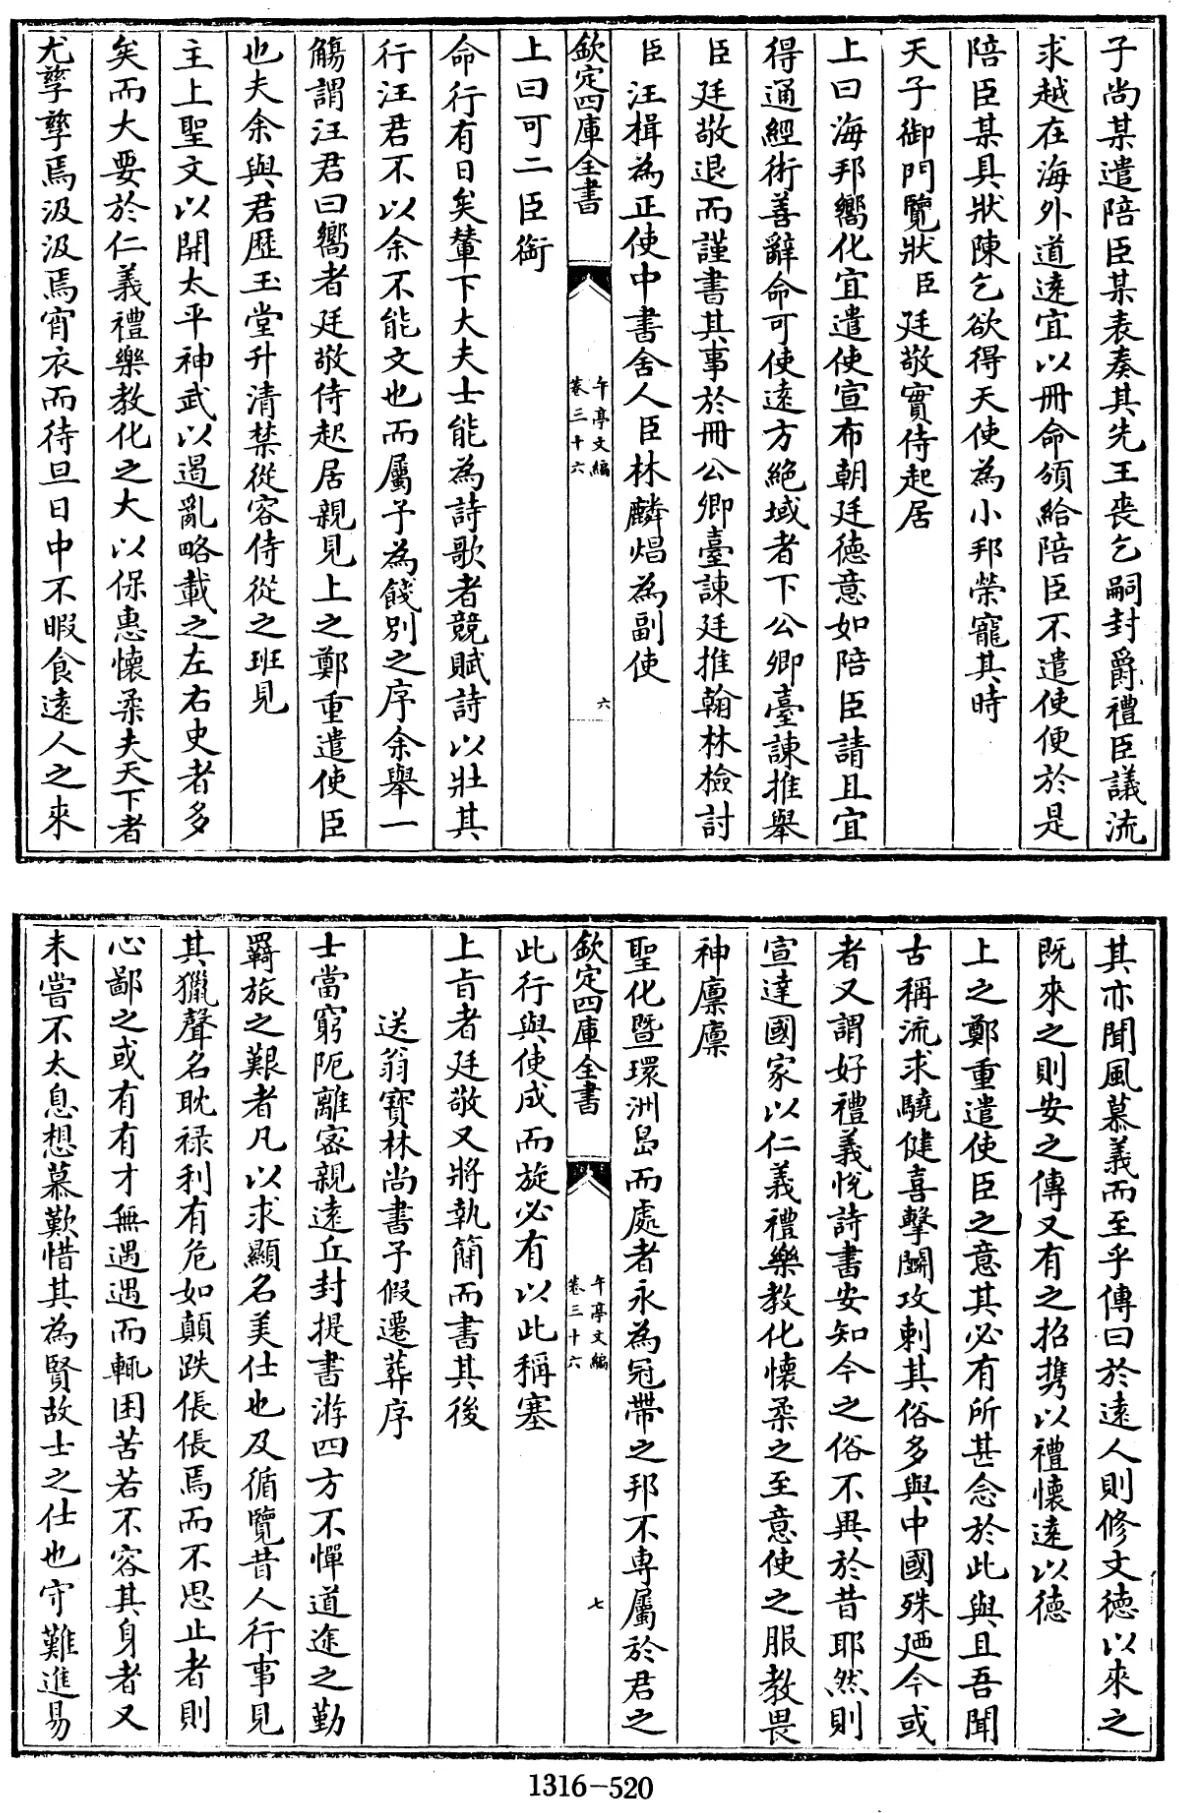 子尚某遣陪臣某表奏其先王喪乞嗣封爵禮臣議流
求越在海外道遠宜以冊命頒給陪臣不遣使便於是
陪臣某具狀陳乞欲得天使為小邦榮寵其時
天子御門覽狀臣廷敬實侍起居
上曰海邦嚮化宜遣使宣布朝廷德意如陪臣請且宜
得通經術善辭命可使遠方絶域者下公卿臺諫推舉
臣廷敬退而謹書其事於冊公卿臺諫廷推翰林檢討
臣汪楫為正使中書舍人臣林麟焻為副使
欽定四庫全書
午亭文編
卷三十六
六
上曰可二臣銜
命行有日矣輦下大夫士能為詩歌者競賦詩以壯其
行汪君不以余不能文也而屬予為餞別之序余舉一
觴謂汪君曰嚮者廷敬侍起居親見上之鄭重遣使臣
也夫余與君歷玉堂升清禁從容侍從之班見
主上聖文以開太平神武以遏亂略載之左右史者多
矣而大要於仁義禮樂教化之大以保惠懷柔夫天下者
尤孳孳焉汲汲焉宵衣而待旦日中不暇食遠人之來
其亦聞風慕義而至乎傳曰於遠人則修文德以來之
既來之則安之傳又有之招攜以禮懷遠以德
上之鄭重遣使臣之意其必有所甚念於此與且吾聞
古稱流求驍健喜擊鬭攻剌其俗多與中國殊廼今或
者又謂好禮義悅詩書安知今之俗不異於昔耶然則
宣達國家以仁義禮樂教化懷柔之至意使之服教畏
神廩廩
聖化暨環洲島而處者永為冠帶之邦不専屬於君之
欽定四庫全書
午亭文編
卷三十六
七
此行與使成而旋必有以此稱塞
上旨者廷敬又將執簡而書其後
送翁寶林尚書予假遷葬序
士當窮阨離宻親遠丘封提書游四方不憚道途之勤
羇旅之艱者凡以求顯名美仕也及循覽昔人行事見
其獵聲名耽祿利有危如顛跌倀倀焉而不思止者則
心鄙之或有有才無遇遇而輒困苦若不容其身者又
未嘗不太息想慕歎惜其為賢故士之仕也守難進易
1316-520